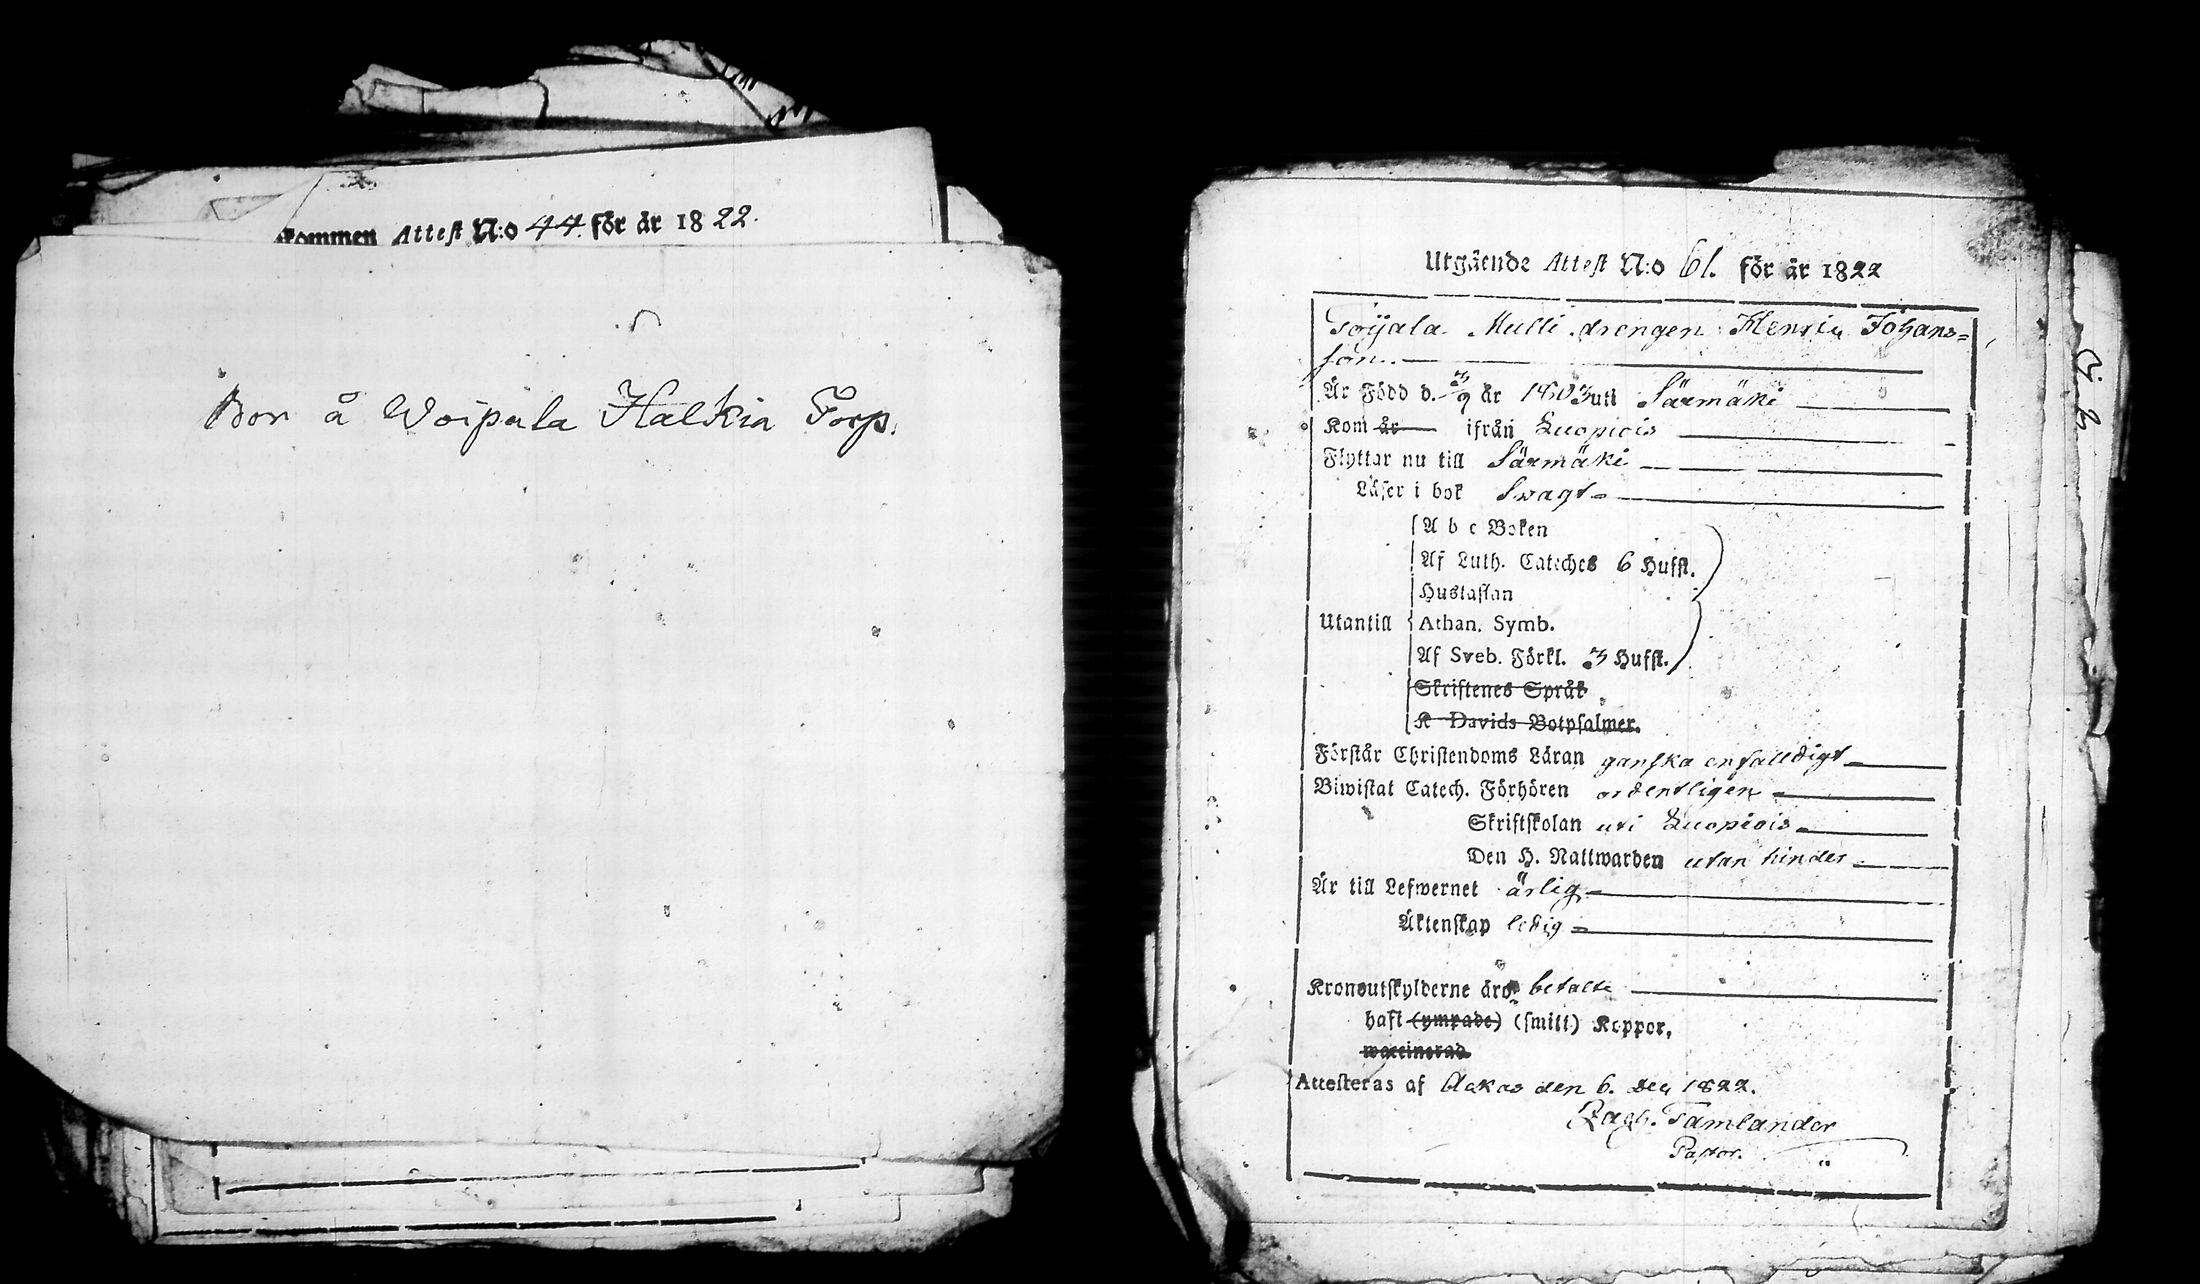 kommen Attest N:o 44. för år 1822.
Bor å Woipala Halkia Torp.
Utgående Attest N:o 61. för år 1822
Toijala Mulli drengen Henric Johans=
son.
Är Född d. 3/9 år 1803 uti Säxmäki
Kom år ifrån Luopiois
Flyttar nu till Säxmäki
Läser i bok Swagt
Utantill
A b c Boken
Af Luth. Cateches 6 Hufst.
Hustaflan
Athan. Symb.
Af Sveb. Förkl. 3 Hufst.
Skriftenes Språk
K Davids Botpsalmer.
Förstår Christendoms Läran ganska enfalldigt
Biwistat Catech. Förhören ordentligen
Skriftskolan uti Luopiois
Den H. Nattwarden utan hinder
Är till Lefwernet ärlig
Äktenskap ledig
Kronoutskylderne äro betalte
haft (ympade) (smitt) Koppor,
waccinerad.
Attesteras af Ackas den 6. Dec 1822.
Zach. Tamlander
Pastor.